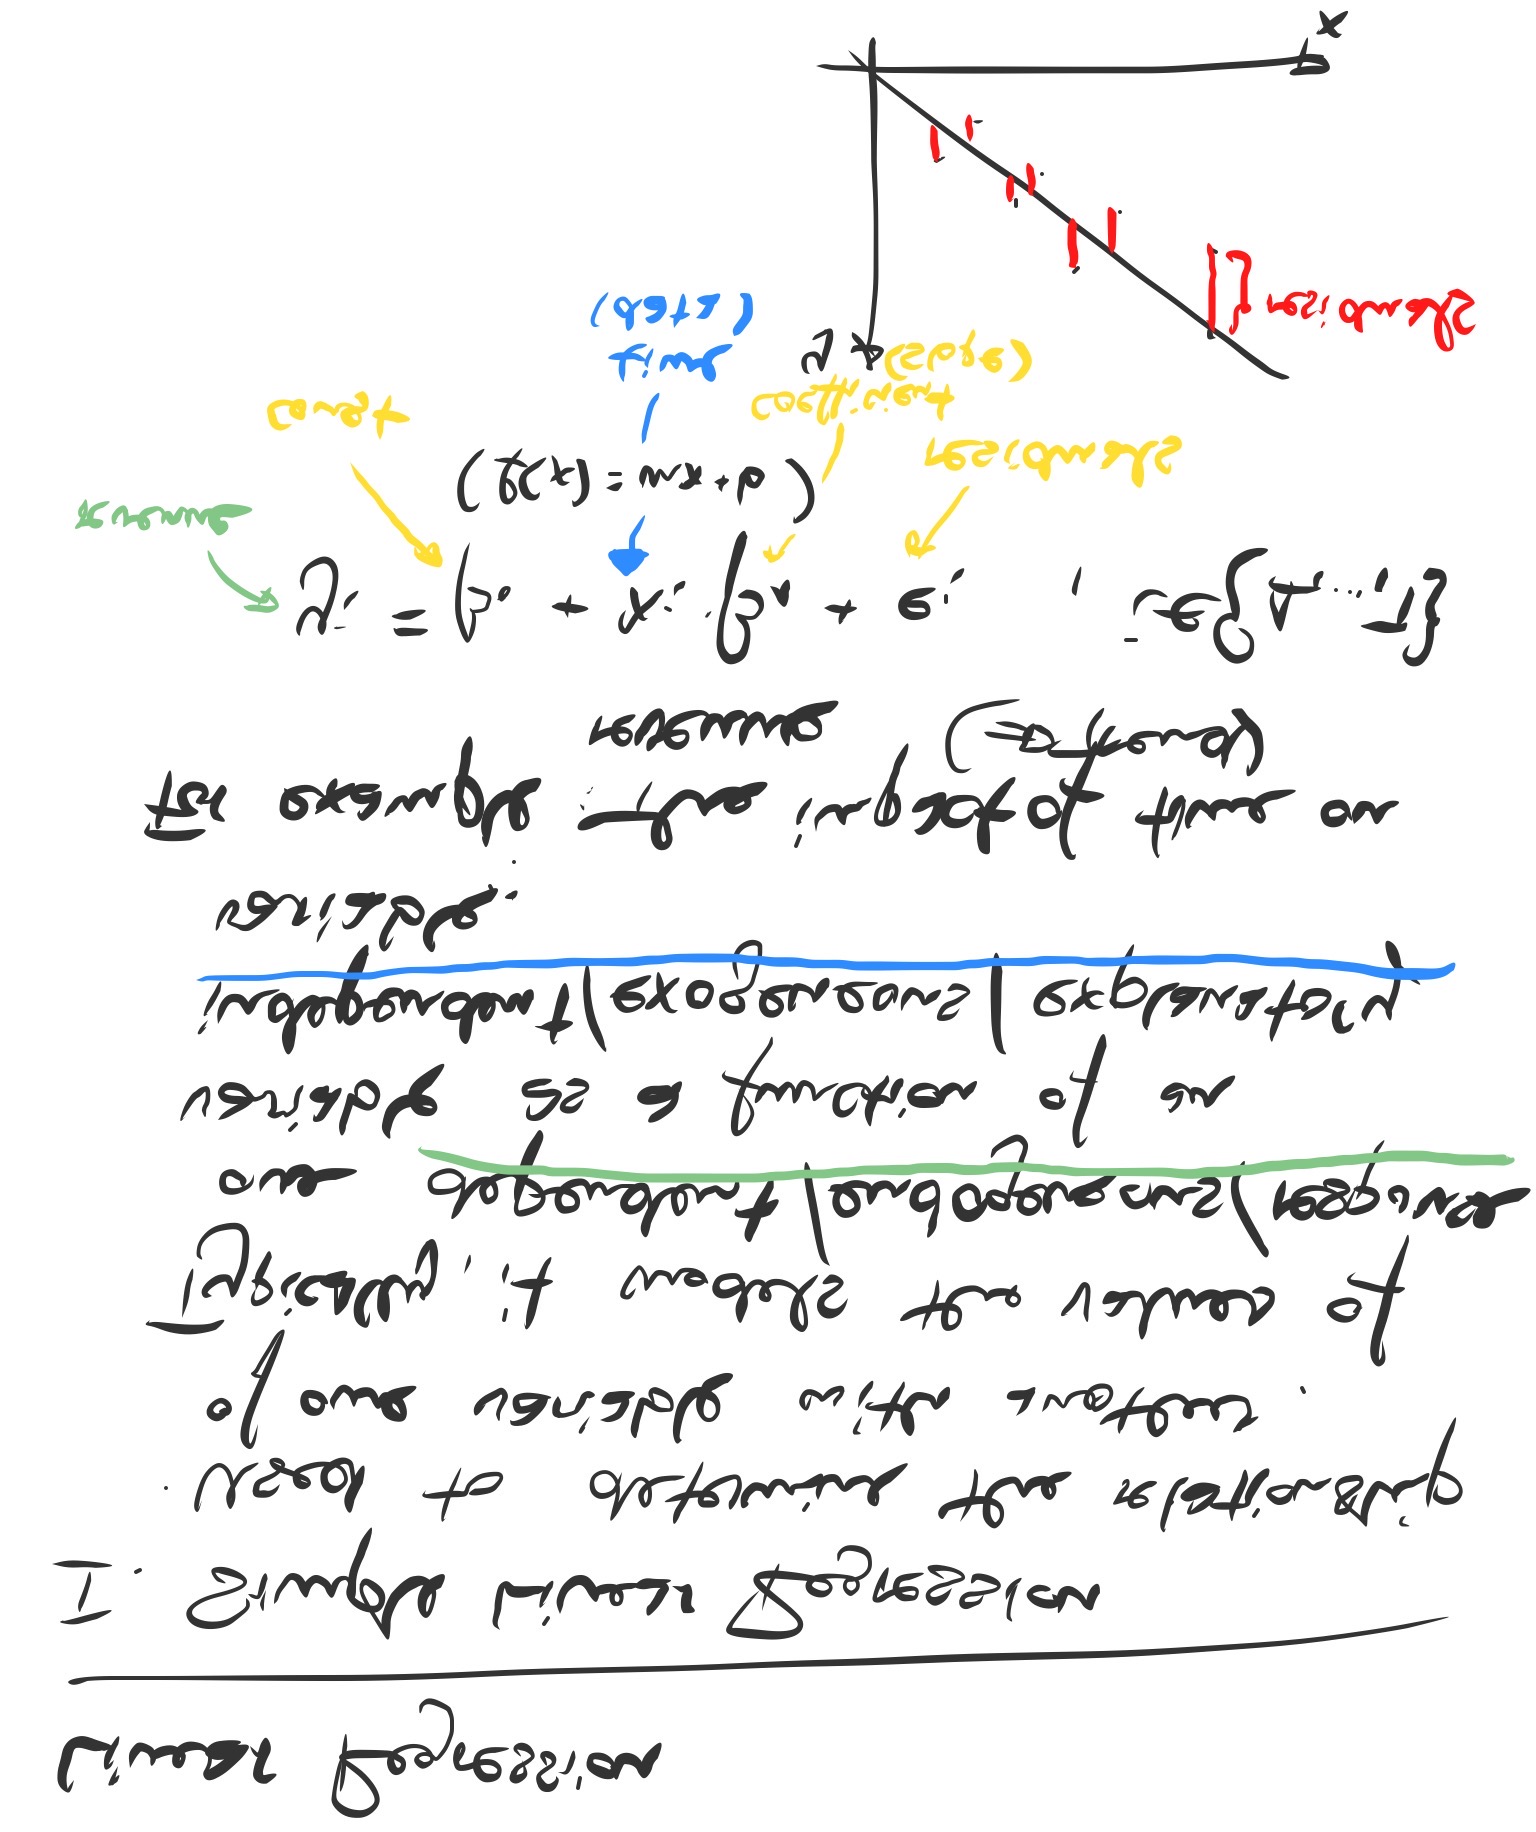 Linear Regression
I. Simple Linear Regression
· Used to determine the relationship
of one variable with another.
Typically, it models the values of
one dependent/endogeneous/response
variable as a function of an
independent/exogeneous/explanatory
variable.
For example: the impact of time on
revenue (⇒Trend)
yᵢ = β₀ + xᵢ · β₁ + eᵢ , i∈{1,...,T}
revenue
(f(x) = mx+b)
residuals
const
coefficient
(slope)
time
(data)
y
} residuals
x